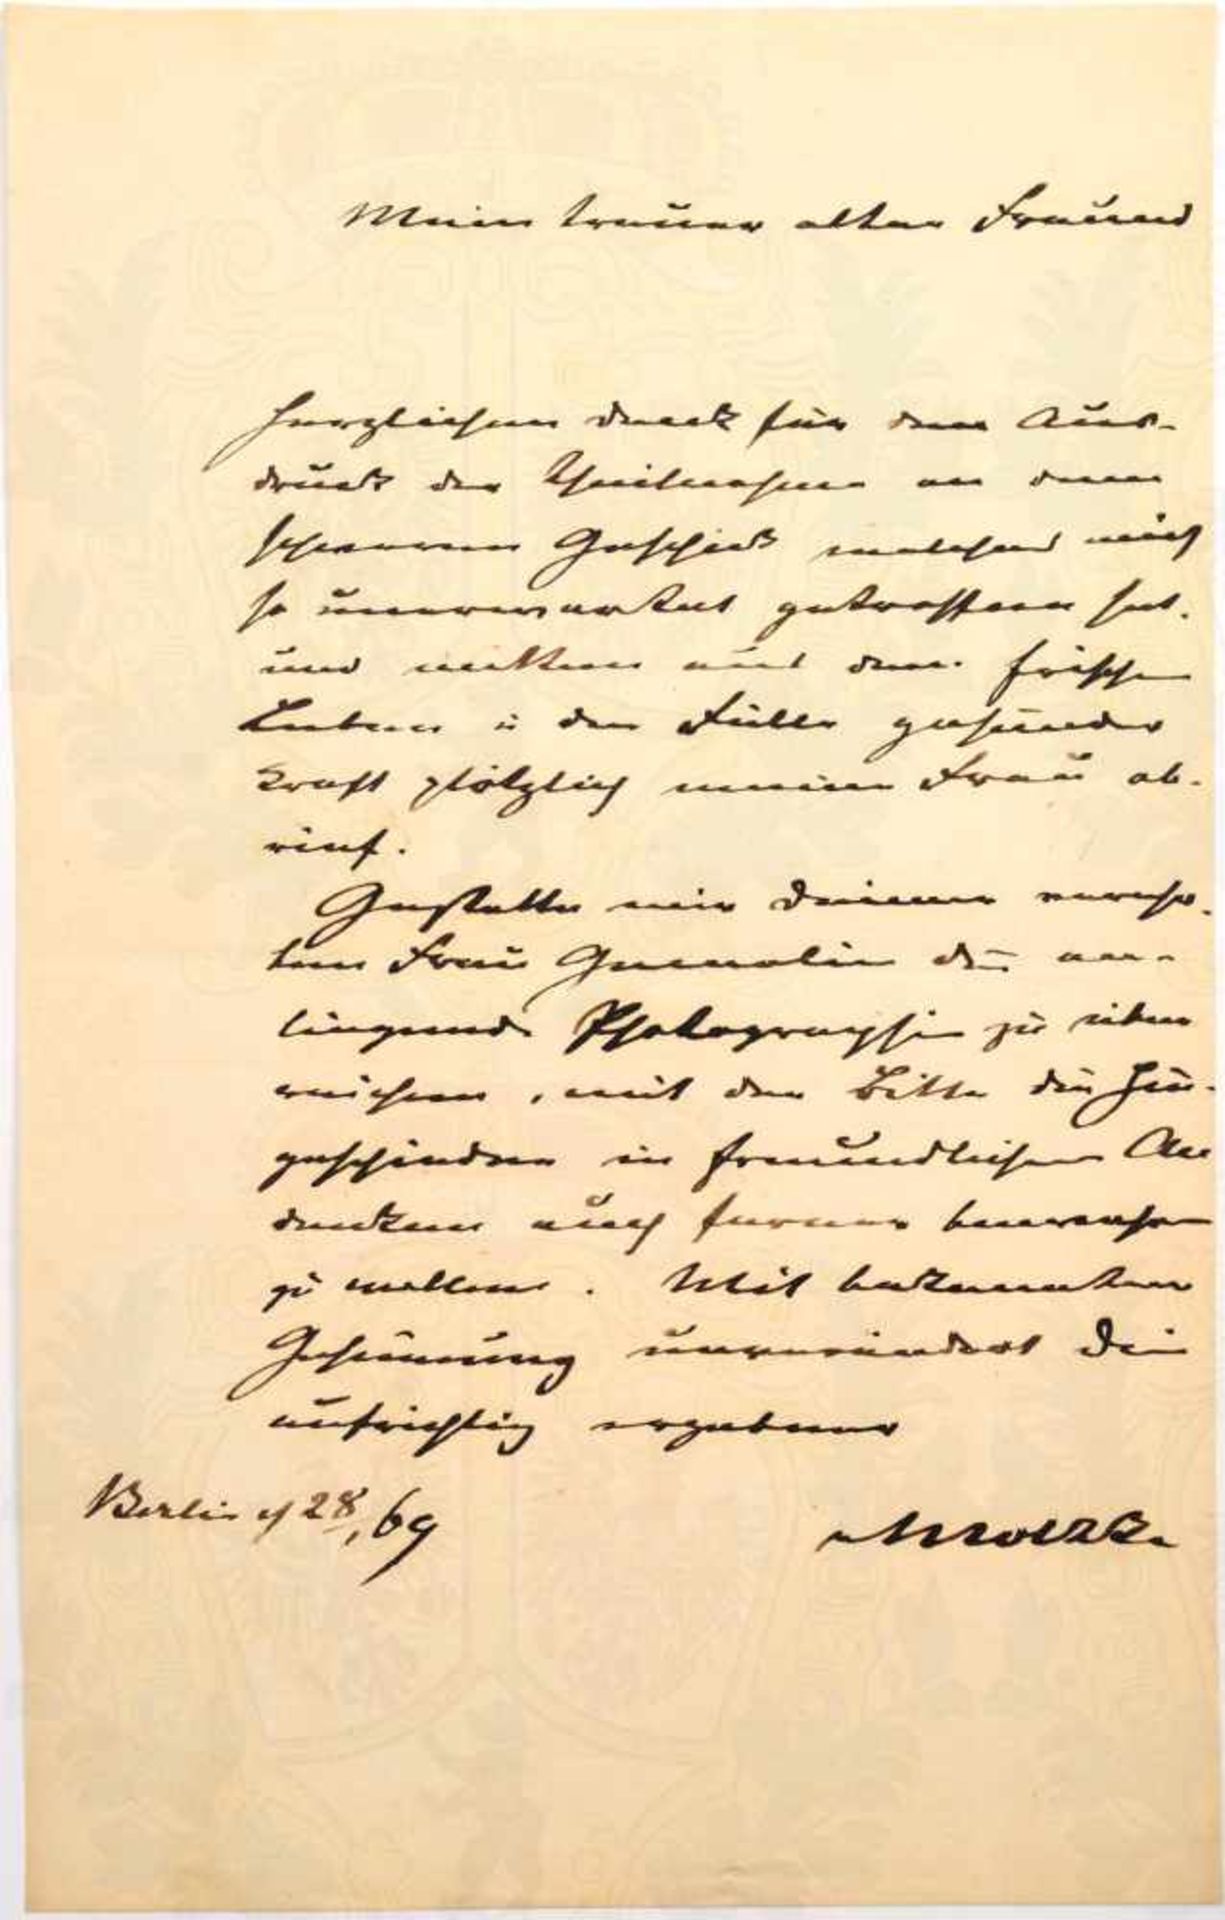 Mein treuer alter Freund
Herzlichen Dank für den Aus-
druck der Theilnahme an dem
schweren Geschick welches mich
so unerwartet getroffen hat.
und mitten aus dem frischen
Leben in der Fülle gesunder
Kraft plötzlich meine Frau ab-
rief.
Gestatte mir Deiner verehr-
ten Frau Gemalin die an-
liegende Photographie zu über
reichen, mit der Bitte die Hin-
geschiedene in freundlichem An
denken auch ferner bewahren
zu wollen. Mit bekannter
Gesinnung unverändert Dein
aufrichtig ergebener
Berlin 28 69
Moltke